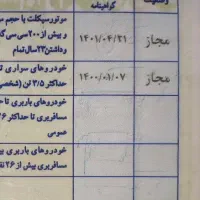 گواهینامه
موتورسیکلت با حجم
و بیش از ۲۰۰ سی سی
داشتن ۲۳ سال تمام
۱۴۰۱/۰۴/۲۱
مجاز
خودروهای سواری تا
حداکثر ۳/۵ تن (شخصی
۱۴۰۰/۰۱/۰۷
مجاز
خودروهای باربری تا
مسافربری تا حداکثر ۲۶
عمومی
خودروهای باربری
مسافربری بیش از ۲۶